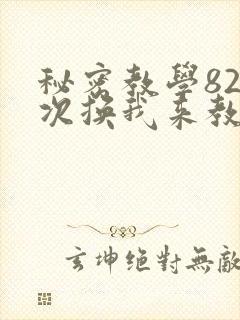 秘密教學82
次換我來教
玄坤絕對無敵